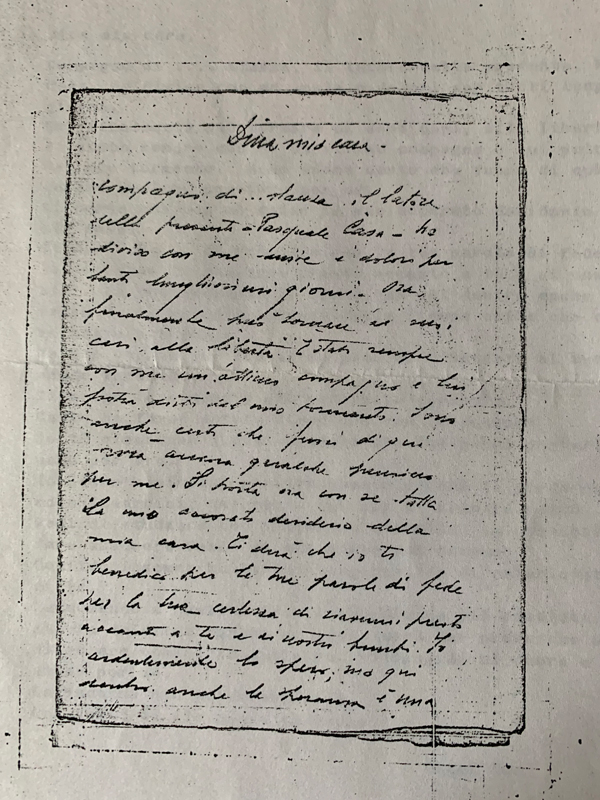 Dina mia cara -
compagno di .. stanza il latore
della presente - Pasquale Casa - ho
diviso con me ansie e dolori per
tanti lunghissimi giorni. Ora,
finalmente può tornare ai suoi
cari, alla libertà. È stato sempre
con me un ottimo compagno e lui
potrà dirti del mio tormento. Sono
anche certo che fuori di qui
avrà ancora qualche pensiero
per me. Si porta via con se tutto
il mio accorato desiderio della
mia casa. Ti dirà che io ti
benedico per le tue parole di fede
per la tua certezza di riavermi presto
accanto a te e ai nostri bimbi. Io
ardentemente lo spero, ma qui
dentro anche la speranza è una